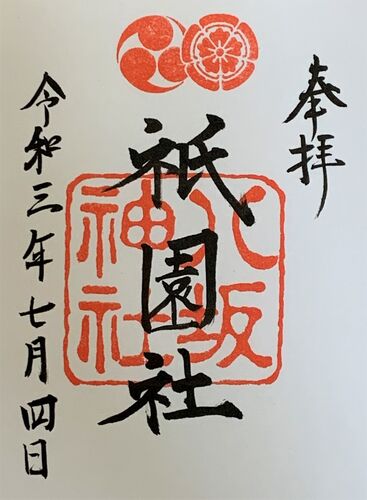 奉拝
八坂
神社
祇園社
令和三年七月四日